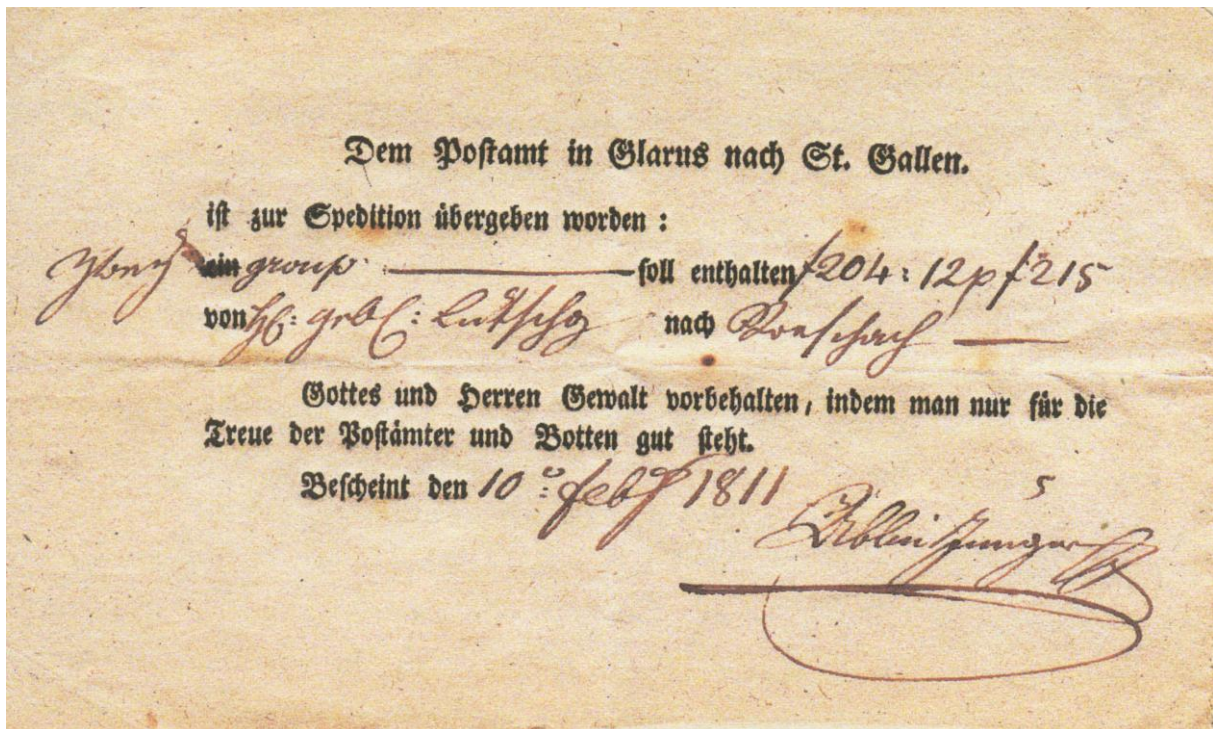 Dem Postamt in Glarus nach St. Gallen.
ist zur Spedition übergeben worden :
Zwey ein group soll enthalten f 204 : 12 p f 215
von Hh: gebr: Lütschg nach Rorschach
Gottes und Herren Gewalt vorbehalten, indem man nur für die
Treue der Postämter und Botten gut steht.
Bescheint den 10 : febr 1811
5